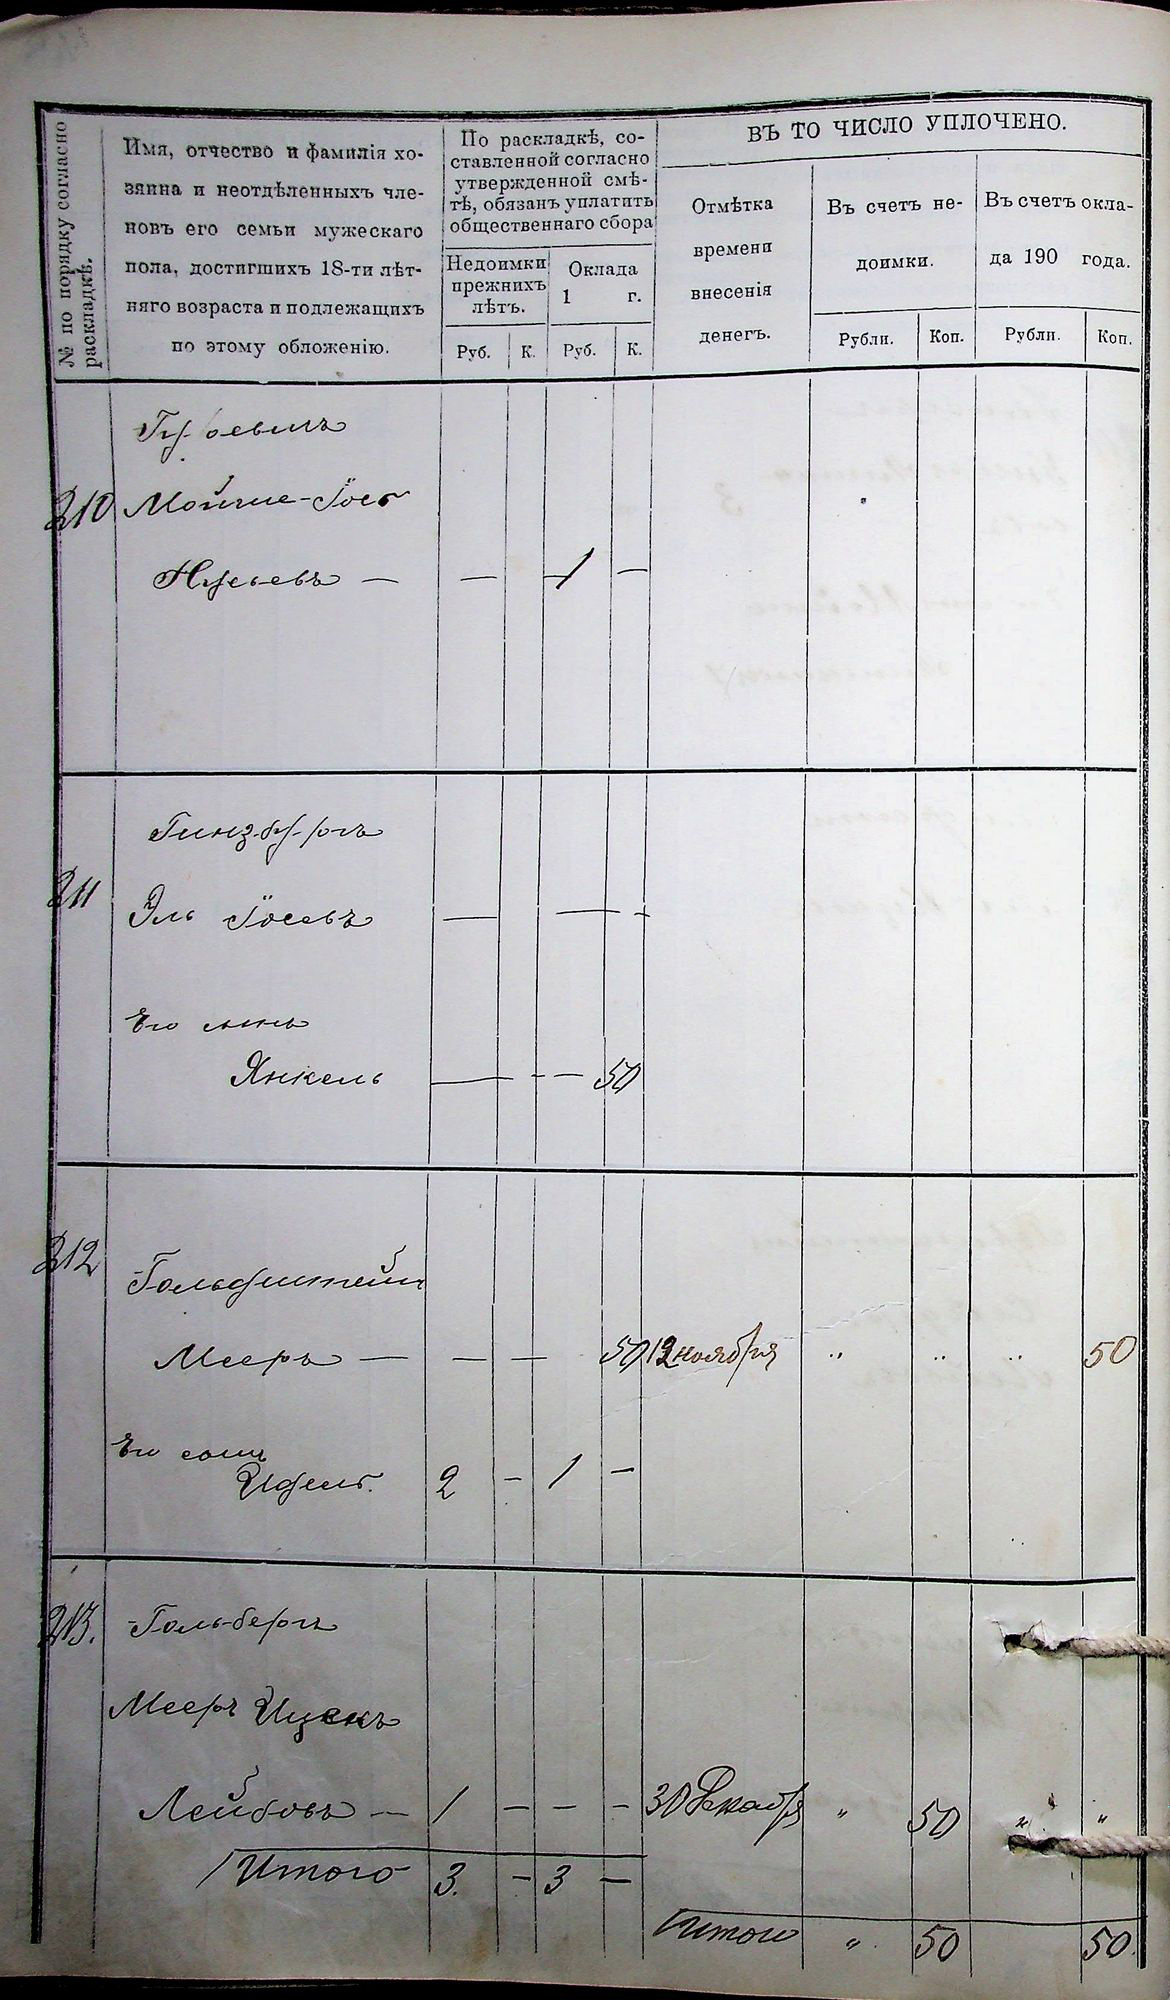 № по порядку согласно
раскладкѣ.
Имя, отчество и фамилія хо-
зяина и неотдѣленныхъ чле-
новъ его семьи мужескаго
пола, достигшихъ 18-ти лѣт-
няго возраста и подлежащихъ
по этому обложенію.
По раскладкѣ, со-
ставленной согласно
утвержденной смѣ-
тѣ, обязанъ уплатить
общественнаго сбора
Недоимки
прежнихъ
лѣтъ.
Оклада
1 г.
Руб. К. Руб. К.
ВЪ ТО ЧИСЛО УПЛОЧЕНО.
Отмѣтка
времени
внесенія
денегъ.
Въ счетъ не-
доимки.
Въ счетъ окла-
да 190 года.
Рубли. Коп. Рубли. Коп.
Гурвичъ
210 Мойше-Іос
— — 1 —
Гинзбургъ
211 Эль Іосевъ — — -
Его сынъ
Янкель — - — 50
212
Гольдштейнъ
Мееръ — — — 50 12 ноября " " " 50
Его сынъ
2 - 1 —
213. Гольбергъ
Мееръ Ицекъ
Лейбовъ — 1 — - — 30 Декабря " 50 " "
Итого 3. — 3 —
Итого " 50 50